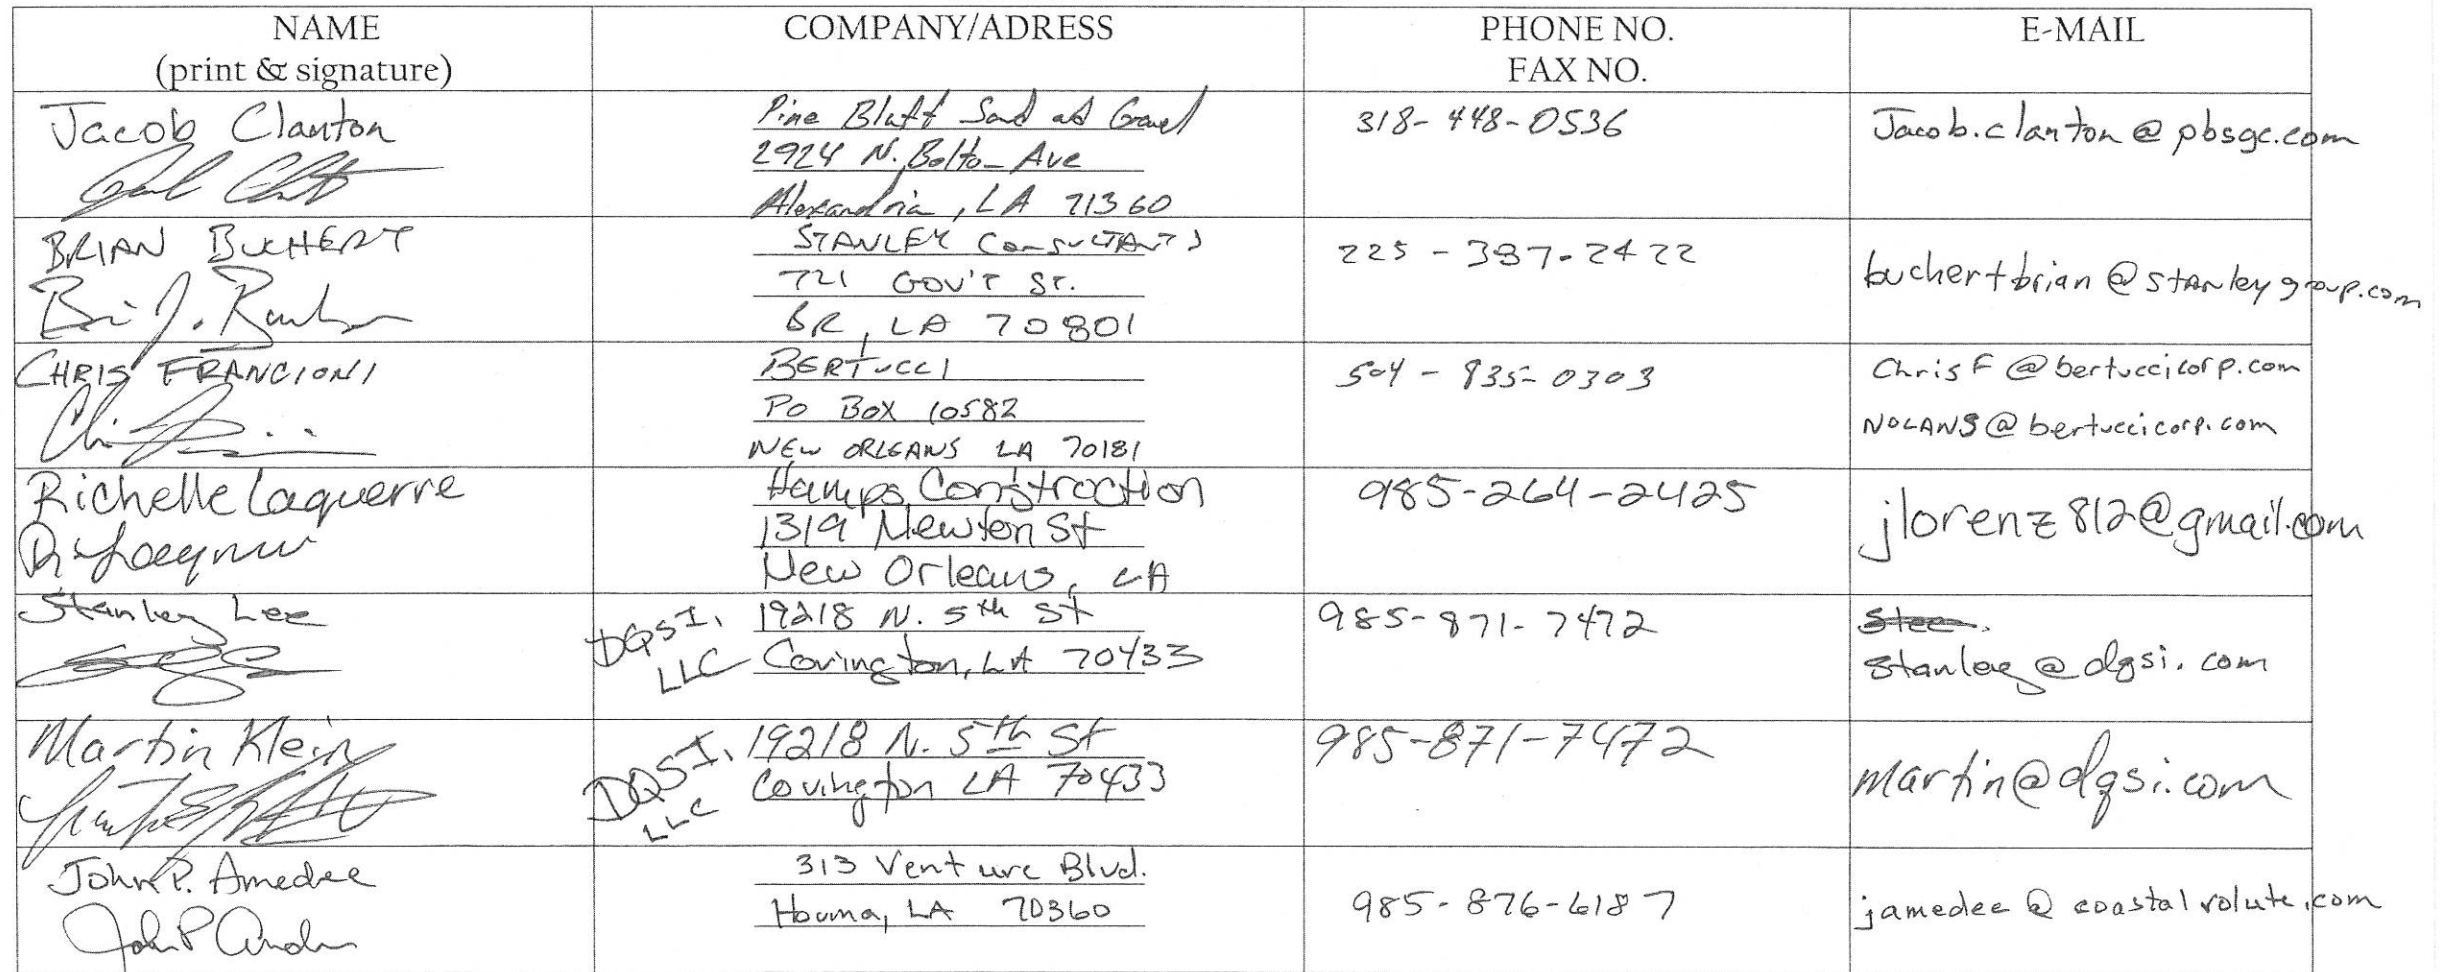 NAME
(print & signature)
COMPANY/ADRESS
PHONE NO.
FAX NO.
E-MAIL
Jacob Clanton
Pine Bluff Sand and Gravel
2924 N. Bolton Ave
Alexandria, LA 71360
318-448-0536
Jacob.clanton@pbsgc.com
BRIAN BUCHERT
STANLEY CONSULTANTS
721 GOV'T ST.
BR, LA 70801
225-387-2422
buchertbrian@stanleygroup.com
CHRIS FRANCIONI
BERTUCCI
PO BOX 10582
NEW ORLEANS LA 70181
504-835-0303
ChrisF@bertuccicorp.com
NOLANS@bertuccicorp.com
Richelle Laquerre
Hamps Construction
1319 Newton St
New Orleans, LA
985-264-2425
jlorenz812@gmail.com
Stanley Lee
DQSI,
LLC
19218 N. 5th St
Covington, LA 70433
985-871-7472
stanley@dqsi.com
Martin Klein
DQSI,
LLC
19218 N. 5th St
Covington LA 70433
985-871-7472
martin@dqsi.com
John P. Amedee
313 Venture Blvd.
Houma, LA 70360
985-876-6187
jamedee@coastalvolute.com